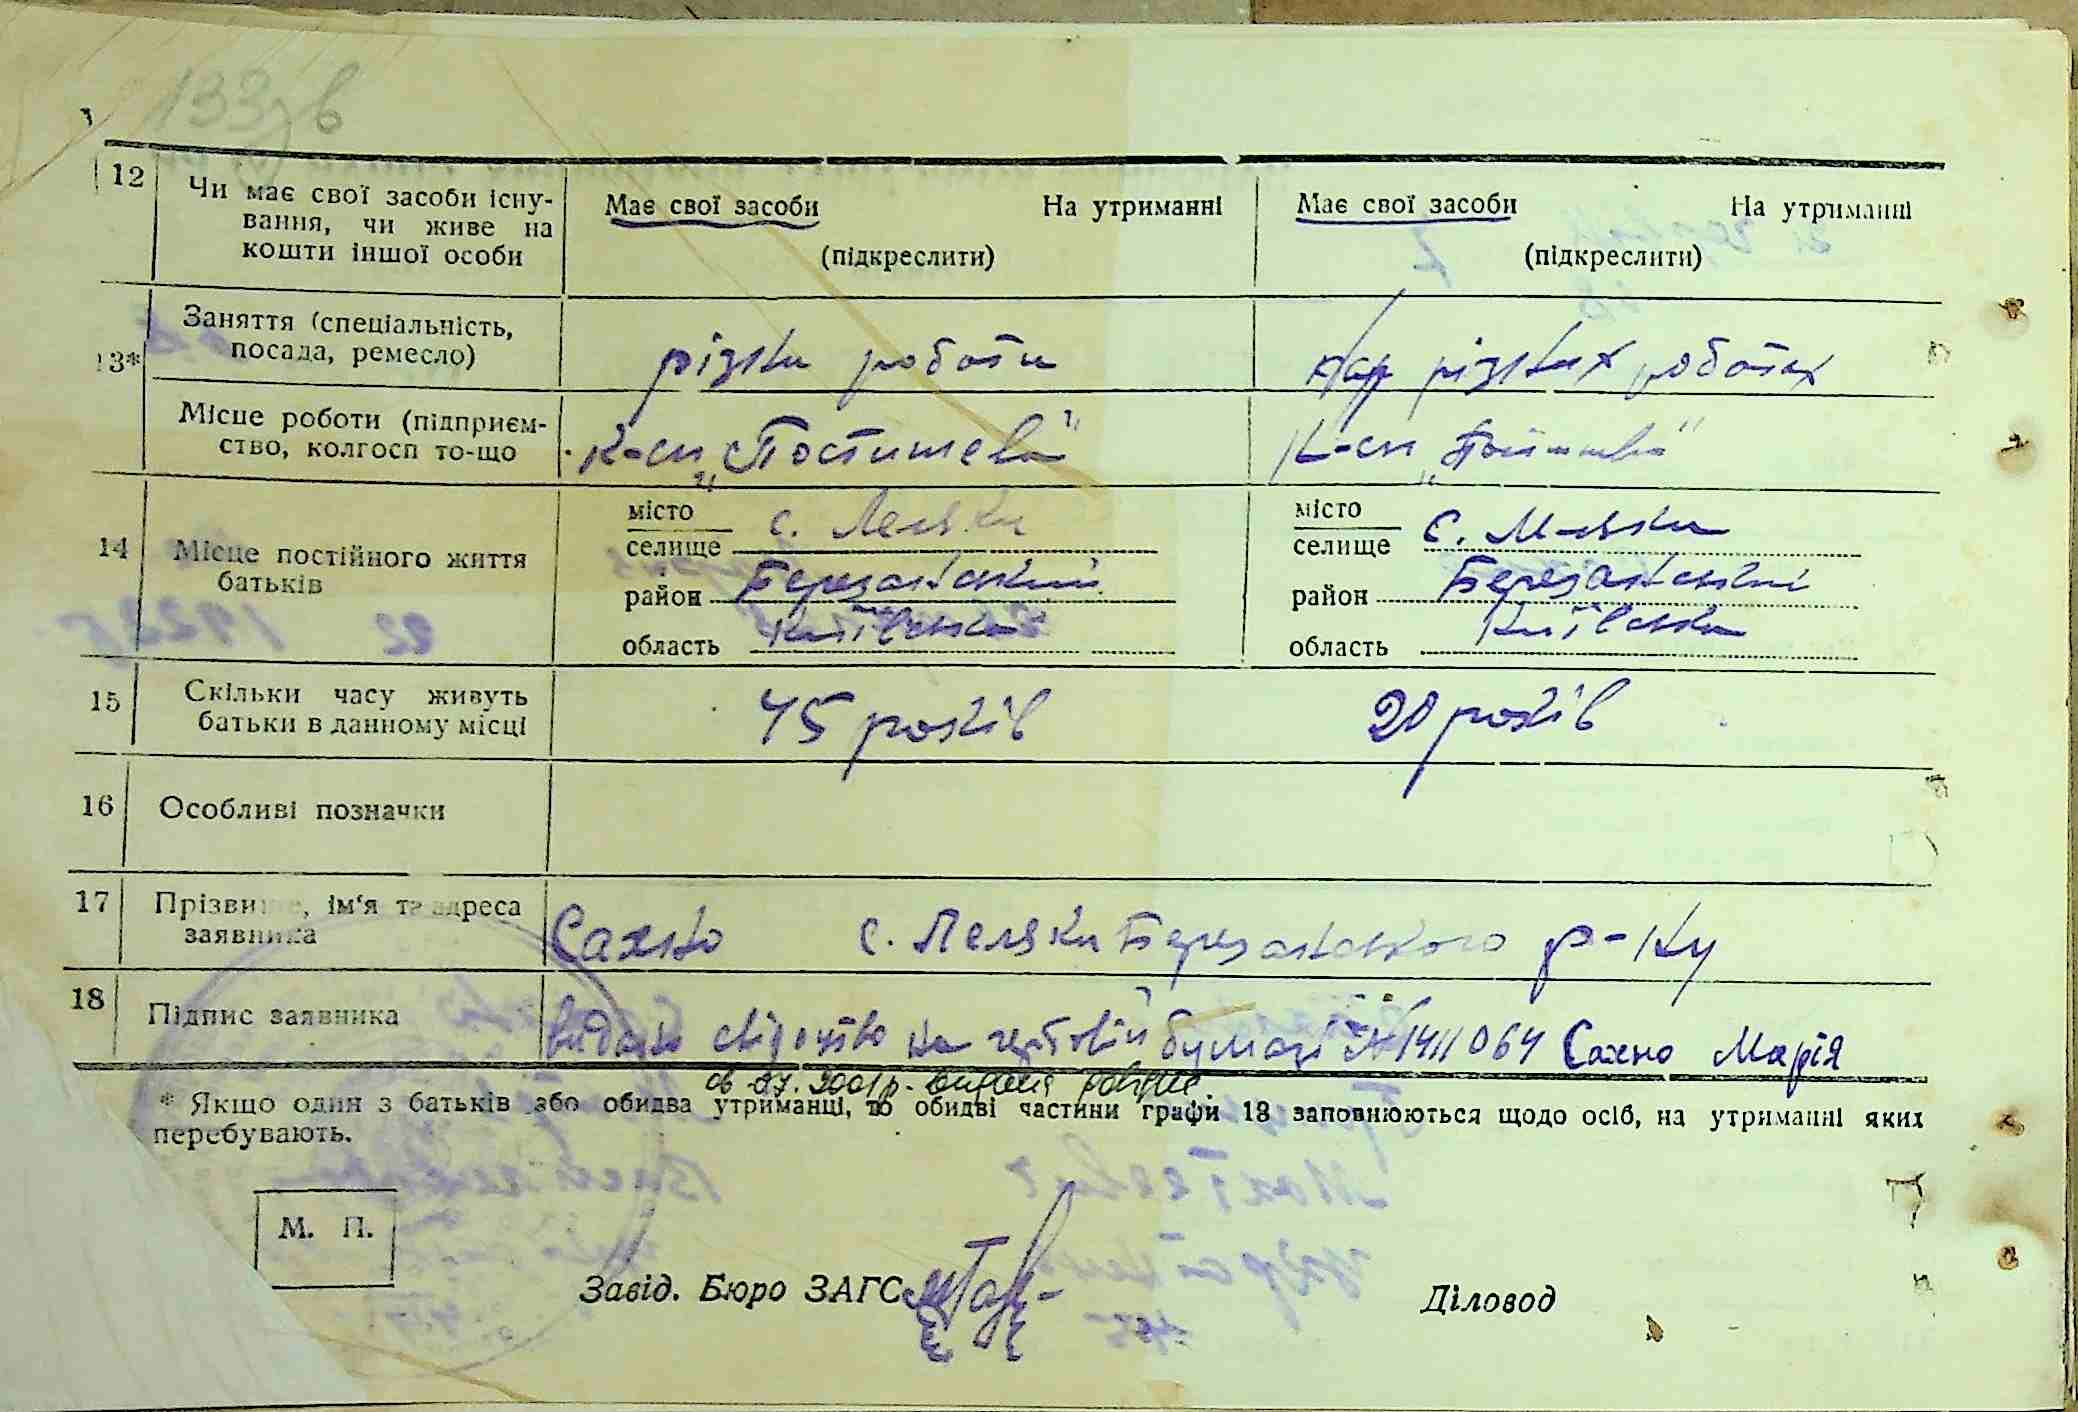 133 зв
12 Чи має свої засоби існу- Має свої засоби На утриманні Має свої засоби На утриманні
вання, чи живе на
кошти іншої особи (підкреслити) (підкреслити)
13* Заняття (спеціальність,
посада, ремесло) різни роботи на різних роботах
Місце роботи (підприєм-
ство, колгосп то-що К-сп „Постишева" К-сп „Постишева"
14 Місце постійного життя
батьків
місто
селище с. Леляки
район Березанський
область Київська
місто
селище с. Леляки
район Березанський
область Київська
15 Скільки часу живуть
батьки в данному місці 45 років 20 років
16 Особливі позначки
17 Прізвище, ім'я та адреса
заявника Сахно с. Леляки Березанського р-ну
18 Підпис заявника видано свідоцтво на гербовій бумазі № 1411064 Сахно Марія
07. 2001р. видана
* Якщо один з батьків або обидва утриманці, то обидві частини графи 13 заповнюються щодо осіб, на утриманні яких
перебувають.
М. П.
Завід. Бюро ЗАГС
Діловод